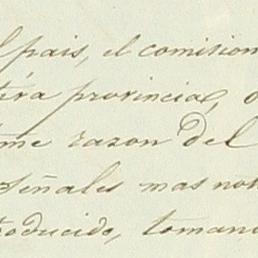 l pais, el comision
tira provincial, o
me razon del
señales mas not
roducido, toman